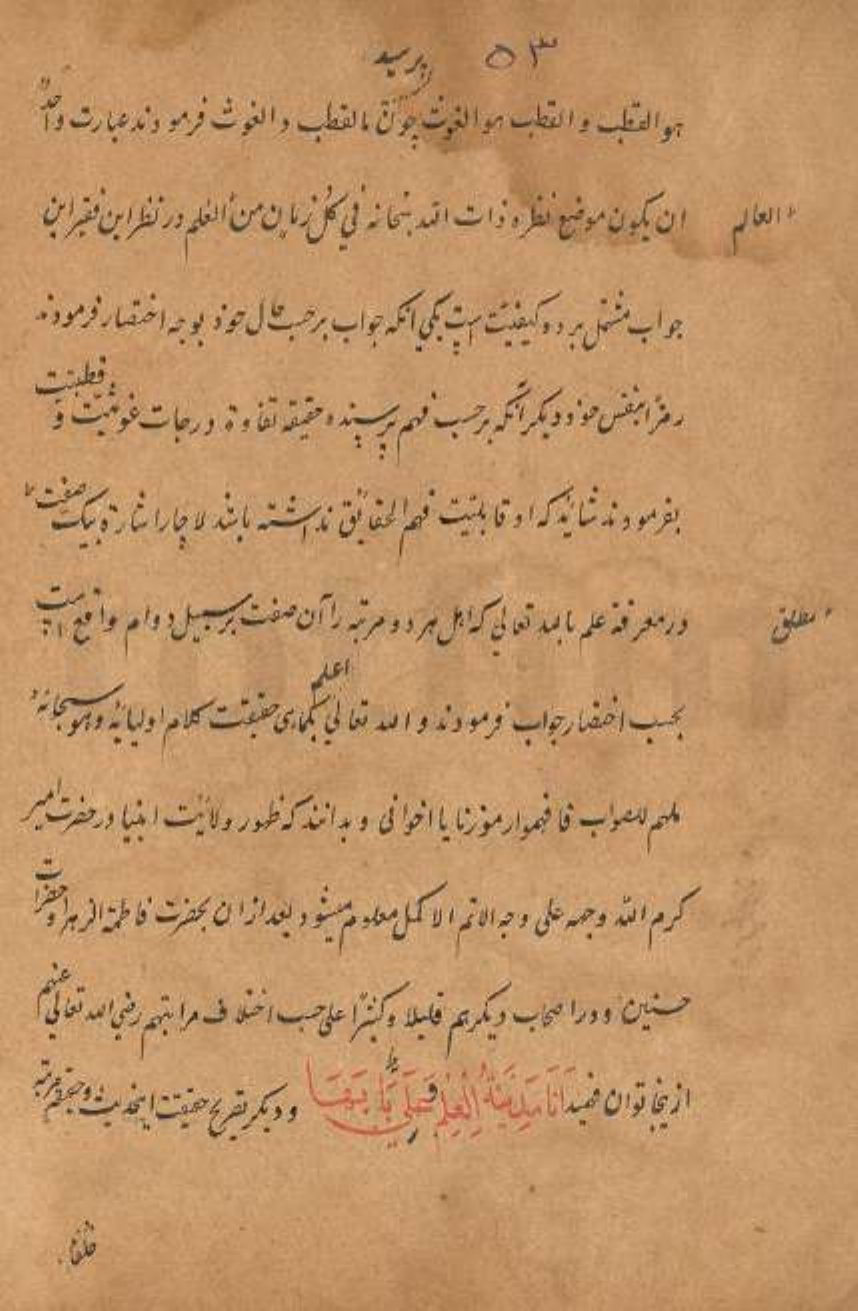 ۵۳
پرسید
هو القطب و القطب هو الغوث چون بالقطب و الغوث فرمودند عبارت واحد
ان یکون موضع نظره ذات الله سبحانه فی کل زمان من العلم در نظر این فقیر این
العالم
جواب مشتمل بر دو کیفیت است یکی انکه جواب بر حسب حال خود بوجه اختصار فرمودند
رمزا بنفس خود و دیکر آنکه بر حسب فهم پرسنده حقیقه تفاوة درجات غوثیت و قطبیت
بفرمودند شائد که او قابلیت فهم الحقائق نداشته باشد لاچار اشارة بیک صفت
در معرفة علم بالله تعالی که اهل هر دو مرتبه را آن صفت بر سبیل دوام واقع است
مطلق
بحسب اختصار جواب فرمودند و الله تعالی اعلم بکماهی حقیقت کلام اولیائه و هو سبحانه
ملهم للصواب فافهموا رموزنا یا اخوانی و بدانند که ظهور ولائیت انبیا در حضرت امیر
کرم الله وجهه علی وجه الاتم الاکمل معلوم میشود بعد ازان بحضرت فاطمة الزهرا و حضرات
حسنین و در اصحاب دیکر هم قلیلا و کثیرا علی حسب اختلاف مراتبهم رضی الله تعالی عنهم
ازینجا توان فهمید اَنَا مَدِیْنَةُ الْعِلْمِ وَ عَلِیٌّ بَابُهَا و دیکر بصریح حقیقت اینحدیث و حقیقة مرتبه